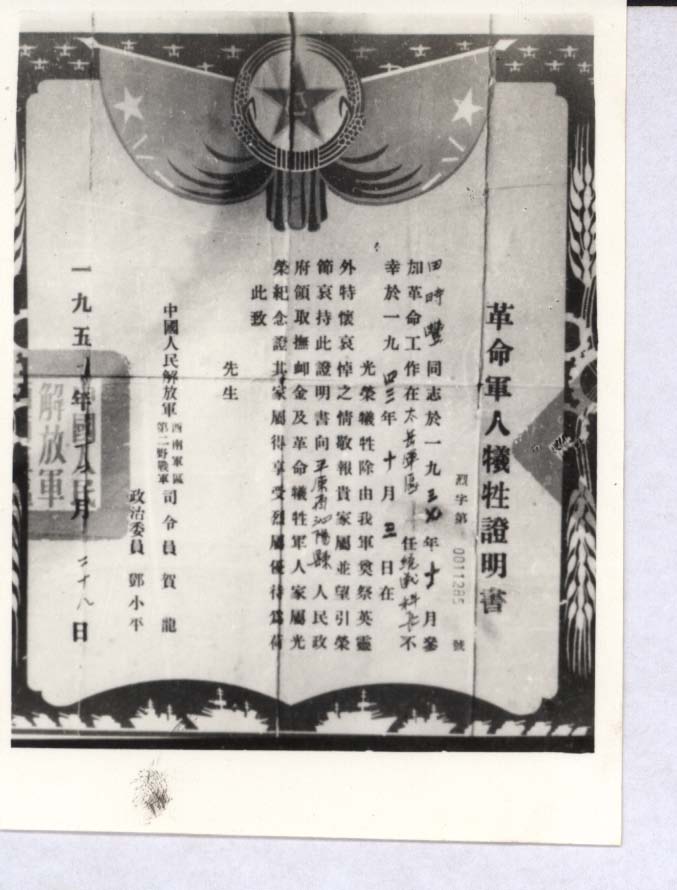 革命軍人犧牲證明書
烈字第 0011285 號
田時豐同志於一九三七年十月參
加革命工作在太岳軍區任統戰科長不
幸於一九四三年十月三日在
光榮犧牲除由我軍奠祭英靈
外特懷哀悼之情敬報貴家屬並望引榮
節哀持此證明書向平原省沁陽縣人民政
府領取撫卹金及革命犧牲軍人家屬光
榮紀念證其家屬得享受烈屬優待爲荷
此致
先生
中國人民解放軍 西南軍區 第二野戰軍 司令員 賀龍
政治委員 鄧小平
一九五年月二十八日
國人民
解放軍